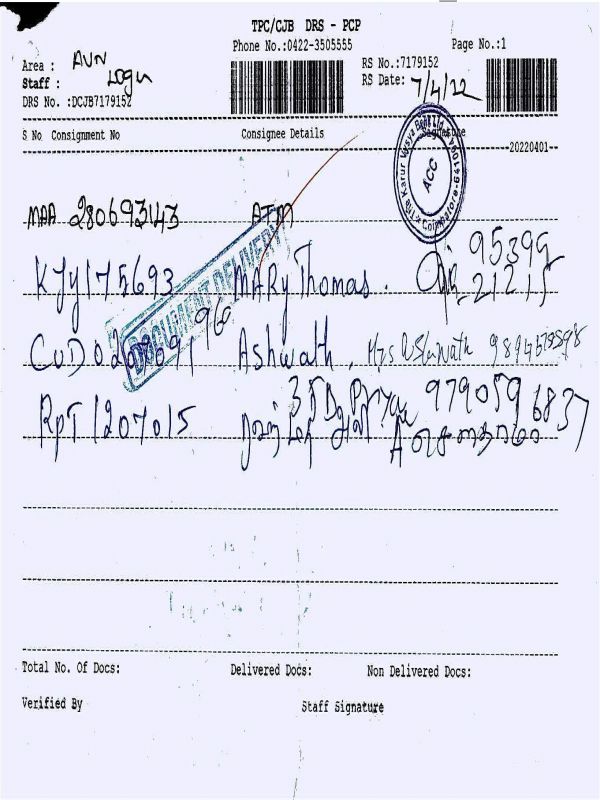 TPC/CJB DRS - PCP
Phone No.:0422-3505555
Page No.:1
Area : AVN
Staff : Logu
DRS No. :DCJB7179152
RS No.:7179152
RS Date: 7/4/22
S No Consignment No Consignee Details Signature
20220401
The Karur Vysya Bank Ltd. Coimbatore-641
ACC
MAA 280693143 ATM
DOCUMENT DELIVERY
KJY175693 MARY Thomas. 95399
21215
Ashwath,
RPT 1207015 979059 6837
Total No. Of Docs: Delivered Docs: Non Delivered Docs:
Verified By Staff Signature